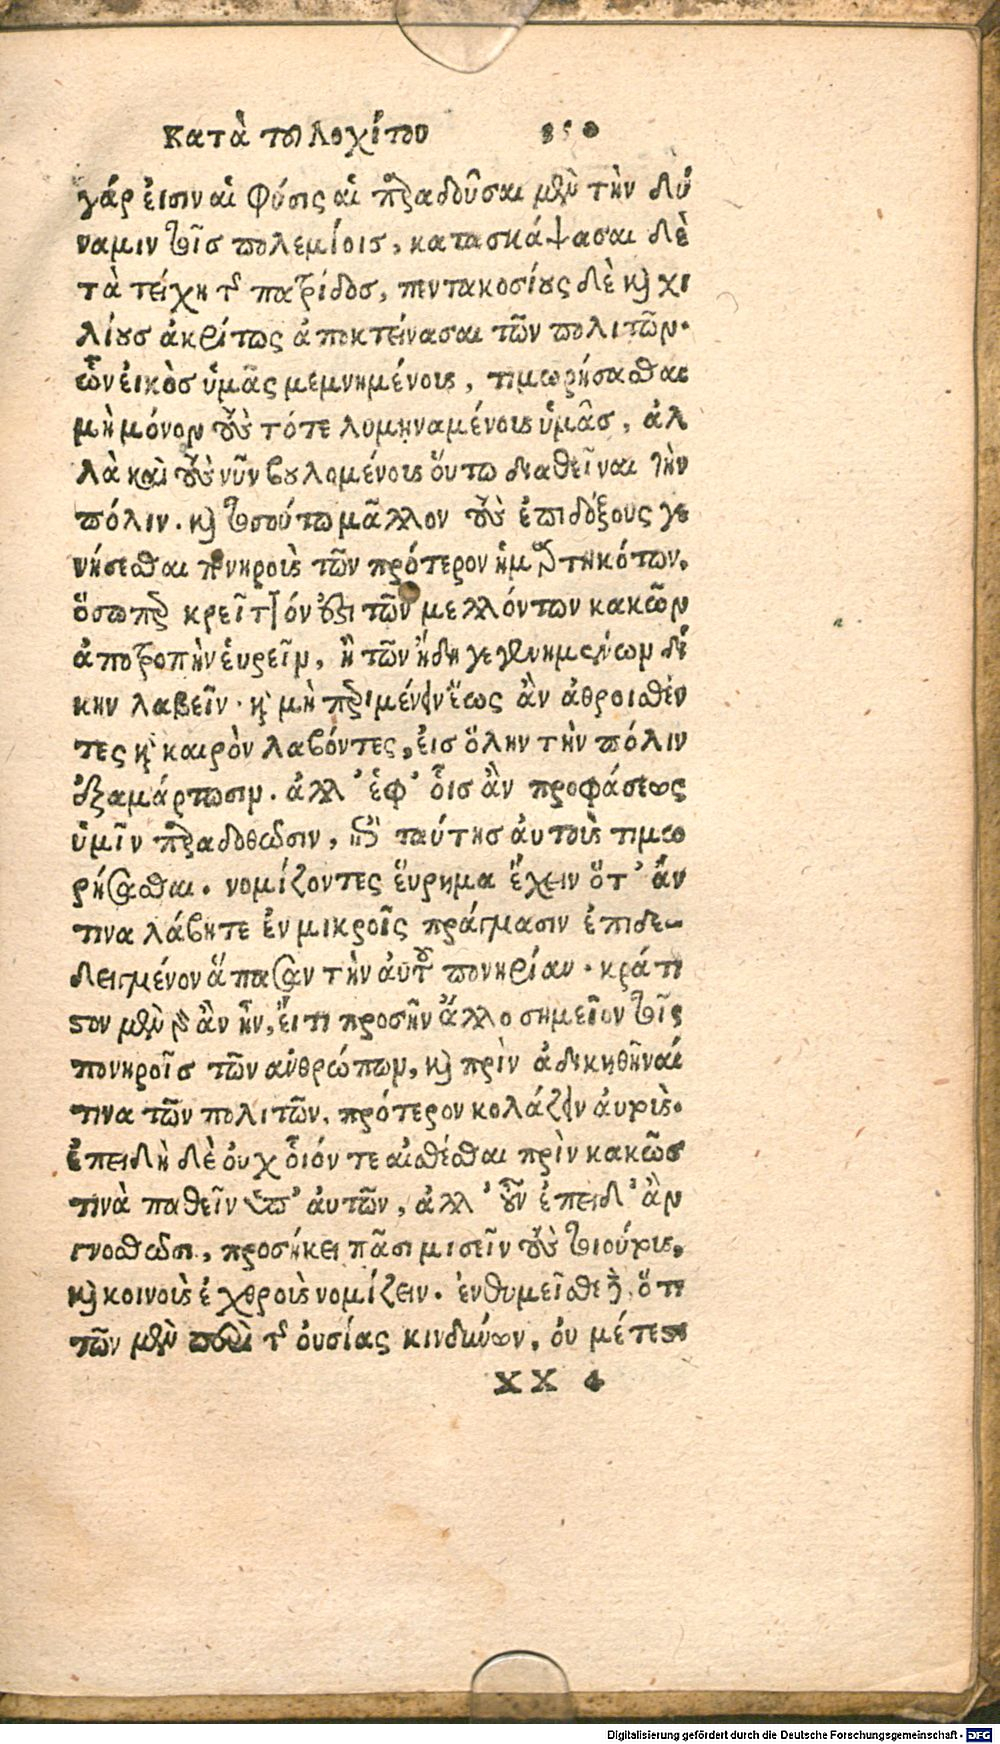 Κατὰ τοῦ Λοχίτου
γάρ ἐισιν αἱ φύσις αἱ παραδοῦσαι μὲν τὴν δύ
ναμιν τοῖς πολεμίοις, κατασκάψασαι δὲ
τὰ τείχη τῆς πατρίδος, πεντακοσίους δὲ καὶ χι
λίους ἀκρίτως ἀποκτείνασαι τῶν πολιτῶν.
ὧν ἐικὸς ὑμᾶς μεμνημένους, τιμωρήσασθαι
μὴ μόνον τοὺς τότε λυμηναμένους ὑμᾶς, ἀλ
λὰ καὶ τοὺς νῦν βουλομένους ὅυτω διαθεῖναι τὴν
πόλιν. καὶ τοσούτω μᾶλλον τοὺς ἐπιδόξους γε
νήσεσθαι πονηροὺς τῶν πρότερον ἡμαρτηκότων,
ὅσωπερ κρεῖττόν ἐστι τῶν μελλόντων κακῶν
ἀποτροπὴν ἑυρεῖν, ἢ τῶν ἤδη γεγενημένων δί
κην λαβεῖν. καὶ μὴ περιμένειν ἕως ἂν ἀθροισθέν
τες καὶ καιρὸν λαβόντες, ἐις ὅλην τὴν πόλιν
ἐξαμάρτωσιν. ἀλλ' ἐφ' οἷς ἂν προφάσεως
ὑμῖν παραδοθῶσιν, ἐπὶ ταύτης ἀυτοὺς τιμω
ρήσασθαι. νομίζοντες ἕυρημα ἔχειν ὅτ' ἄν
τινα λάβητε ἐν μικροῖς πράγμασιν ἐπιδε-
δειγμένον ἅπασαν τὴν ἀυτοῦ πονηρίαν. κράτι
στον μὲν γὰρ ἂν ἦν, ἔι τι προσῆν ἄλλο σημεῖον τοῖς
πονηροῖς τῶν ἀνθρώπων, καὶ πρὶν ἀδικηθῆναί
τινα τῶν πολιτῶν, πρότερον κολάζειν ἀυτούς.
ἐπειδὴ δὲ ὀυχ οἷόν τε αἰσθέσθαι πρὶν κακῶς
τινὰ παθεῖν ὑπ' ἀυτῶν, ἀλλ' οὖν ἐπειδ' ἂν
γνοσθῶσι, προσήκει πᾶσι μισεῖν τοὺς τοιούτους,
καὶ κοινοὺς ἐχθροὺς νομίζειν. ἐνθυμεῖσθε δὲ ὅτι
τῶν μὲν περὶ τῆς ὀυσίας κινδύνων, ὀυ μέτεστι
XX 4
Digitalisierung gefördert durch die Deutsche Forschungsgemeinschaft - DFG